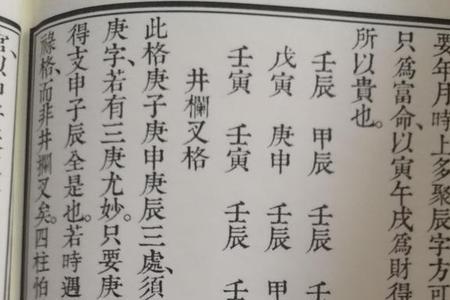 要年月時上多聚辰字方可
只爲富命、以寅午戌爲財得
所以貴也。
壬辰 甲辰 壬辰 壬
戊寅 庚申 壬辰 甲
壬寅 壬寅 壬辰 壬
井欄叉格
此格庚子庚申庚辰三處、須
庚字、若有三庚尤妙。只要庚
得支申子辰全是也。若時遇
祿格、而非井欄叉矣。四柱怕